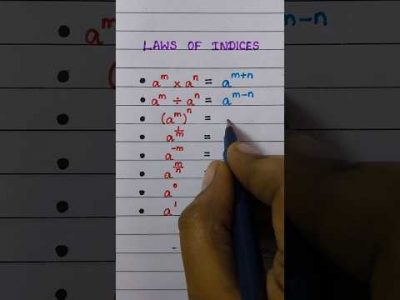 LAWS OF INDICES
• aᵐ × aⁿ = aᵐ⁺ⁿ
• aᵐ ÷ aⁿ = aᵐ⁻ⁿ
• (aᵐ)ⁿ =
• a^(1/m) =
• a⁻ᵐ =
• a^(m/n)
• a⁰
• a¹